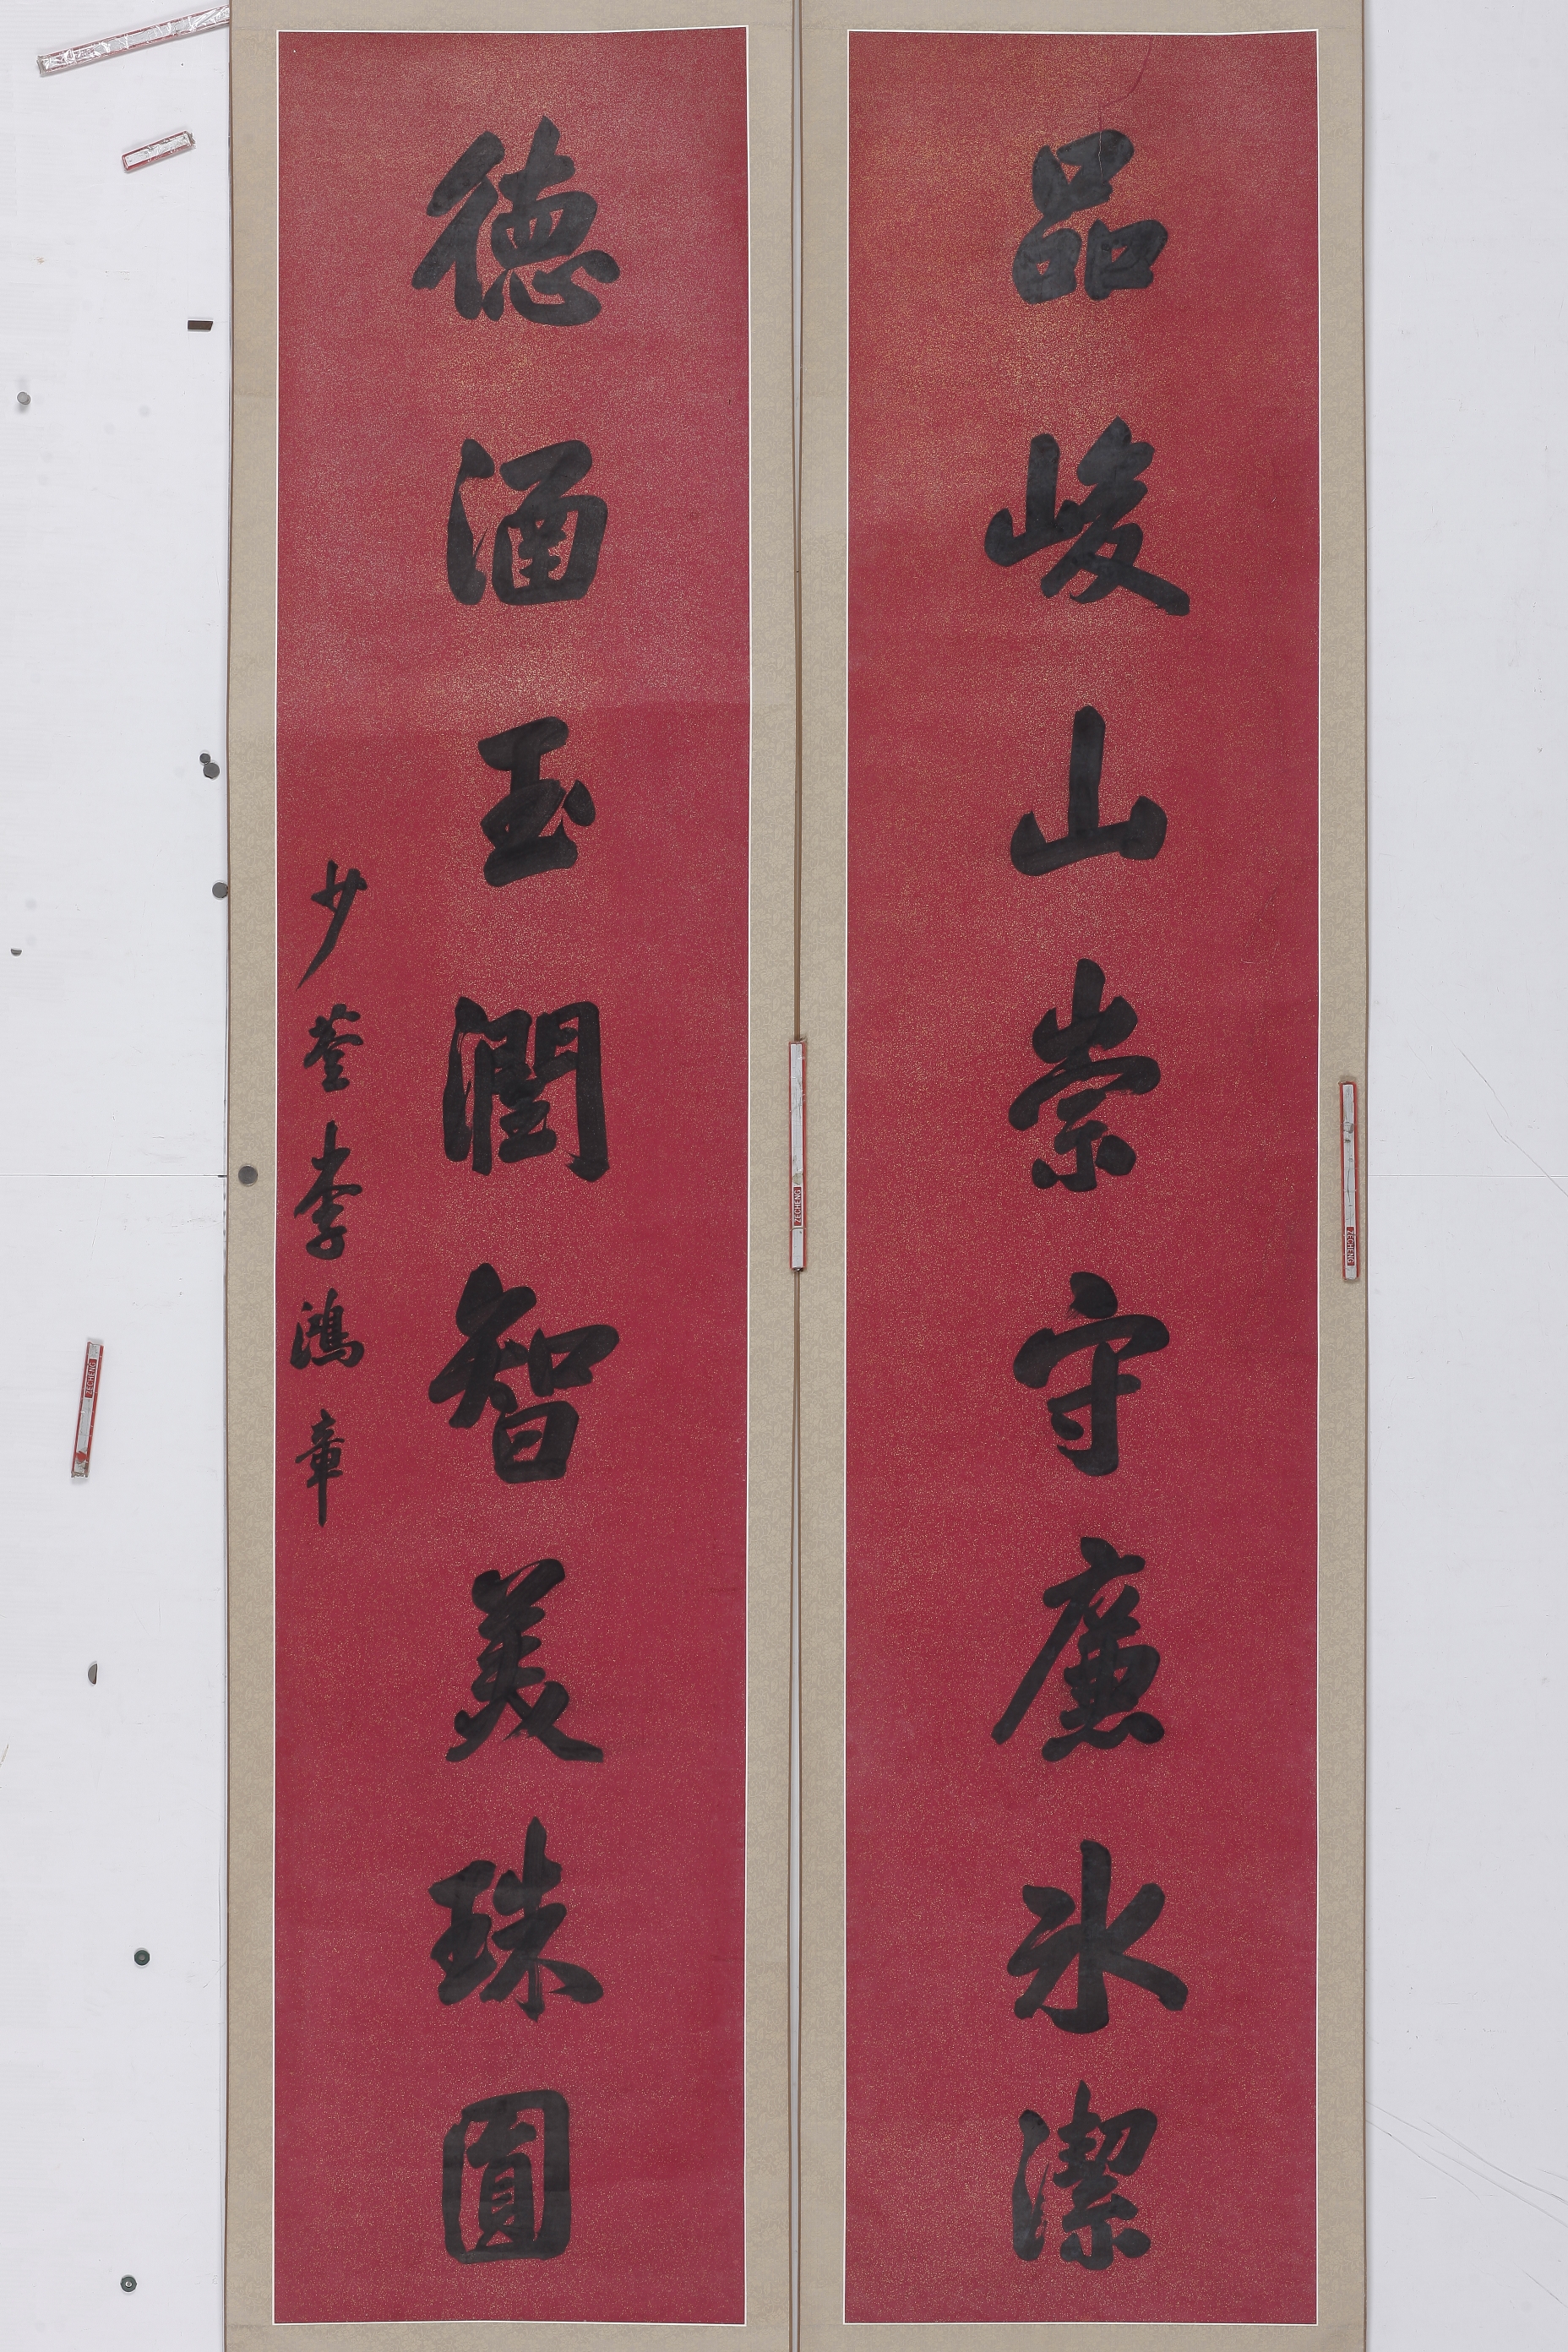 品峻山崇守廉冰潔
德涵玉潤智美珠圓
少荃李鴻章
ZECHENG
ZECHENG
ZECHENG